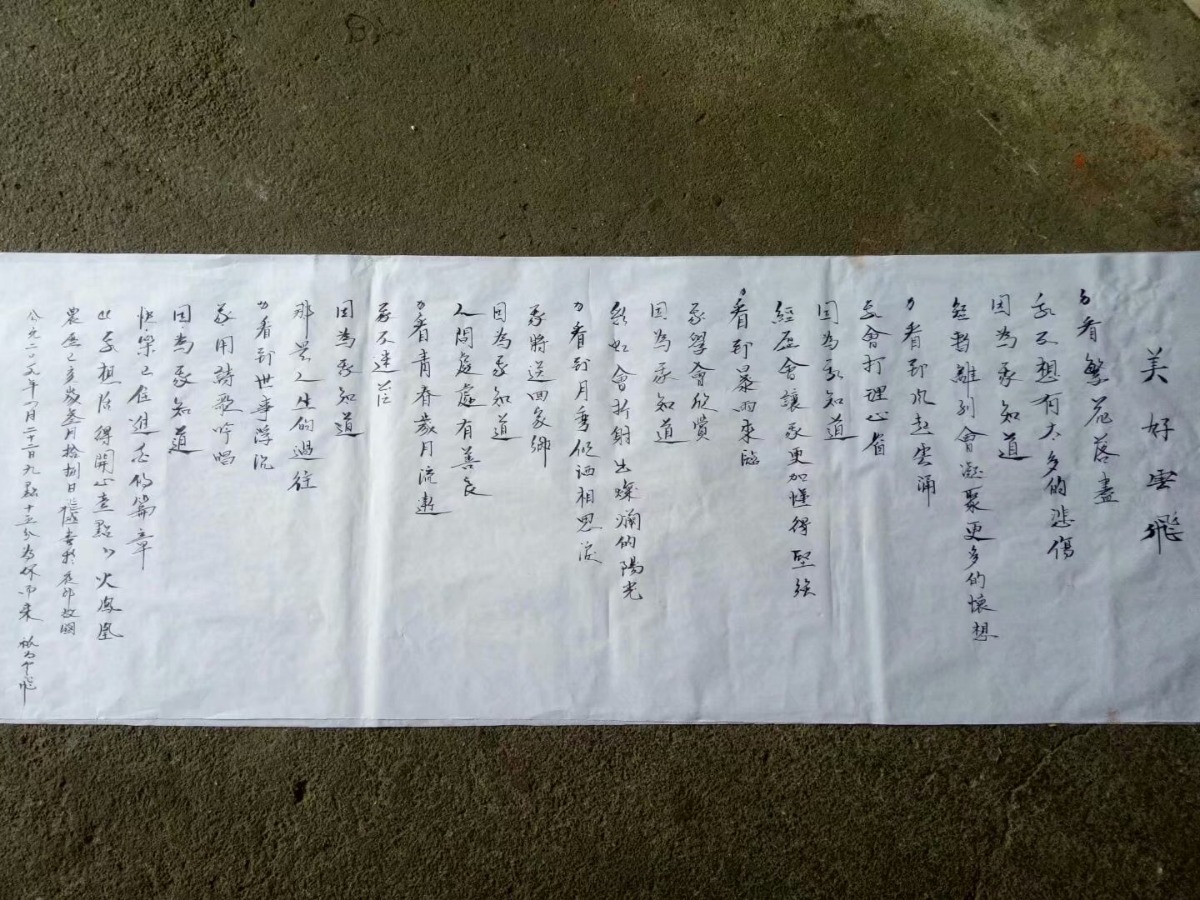 美好雲飛
看繁花落盡
我不想有太多的悲傷
因為我知道
短暫離別會凝聚更多的懷想
看到風起雲涌
我會打理心
因為我知道
經歷會讓我更加懂得堅強
看到暴雨來臨
我學會欣賞
因為我知道
彩虹會折射出燦爛的陽光
看到月
相思淚
我將送回家鄉
因為我知道
人間處處有善良
看青春歲月流逝
我不迷茫
因為我知道
那是人生的過往
看到世事浮沉
我用詩歌吟唱
因為我知道
快樂已住進
的篇章
我想活得開心一點
火鳳凰
農歷己亥歲叁月拾捌日
年
月二十二日九點十五分為